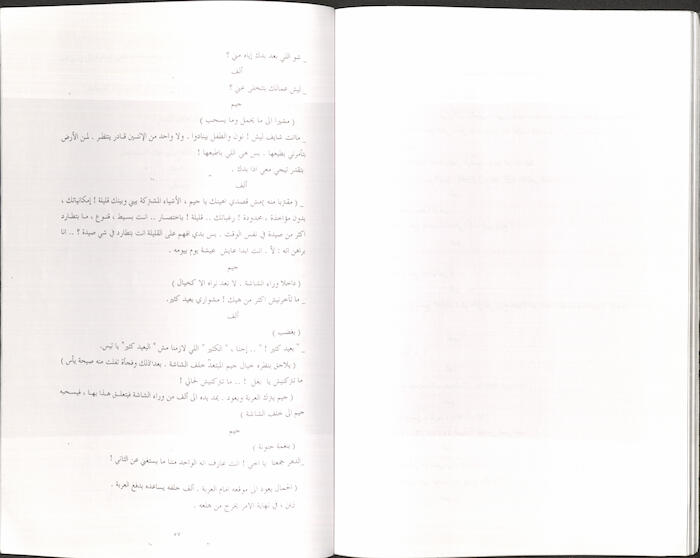 _ شو اللي بعد بدك إياه مني ؟
ألف
_ ليش عمالك بتتخلى عني ؟
جيم
( مشيرا الى ما يحمل وما يسحب )
_ مانت شايف ليش ! نون والطفل بينادوا . ولا واحد من الإثنين قادر ينتظر . لمن الأرض
بتأمرني بطيعها . بس هي اللي باطيعها !
بتقدر تيجي معي اذا بدك .
ألف
_ ( مقتربا منه بيعض قصدي احبك يا جيم ، الأشياء المشتركة بيني وبينك قليلة ! إمكانياتك ،
بدون مؤاخذة ، محدودة ! رغباتك .. قليلة ! باختصار .. انت بسيط ، قنوع ، ما بتطارد
اكثر من صيدة في نفس الوقت . بس بدي افهم على القليلة انت بتطارد في شي صيدة ؟ .. انا
براهن انه : لأ . انت ابدا عايش عيشة يوم بيومه .
جيم
( داخلا وراء الشاشة . لا نعد نراه الا كخيال )
_ ما تأخرنيش اكثر من هيك ! مشواري بعيد كثير.
ألف
( بغضب )
_ " بعيد كثير ! " .. إحنا ، " الكثير " اللي لازمنا مش " البعيد كثير " يا تيس.
( يلاحق بنظره خيال جيم المبتعد خلف الشاشة . بعد ذلك وفجأة تفلت منه صيحة يأس )
ما تتركنيش يا بغل ! .. ما تتركنيش لحالي !
( جيم يترك العربة ويعود . يمد يده الى ألف من وراء الشاشة فيتعلق هذا بها ، فيسحبه
جيم الى خلف الشاشة )
جيم
( بنغمة حنونة )
_ الدهر جمعنا يا اخي ! انت عارف انه الواحد منا ما يستغني عن الثاني !
( الجمال يعود الى موقعه امام العربة . ألف خلفه يساعده بدفع العربة .
نون ، في نهاية الامر تخرج من هلعه .
٥٧